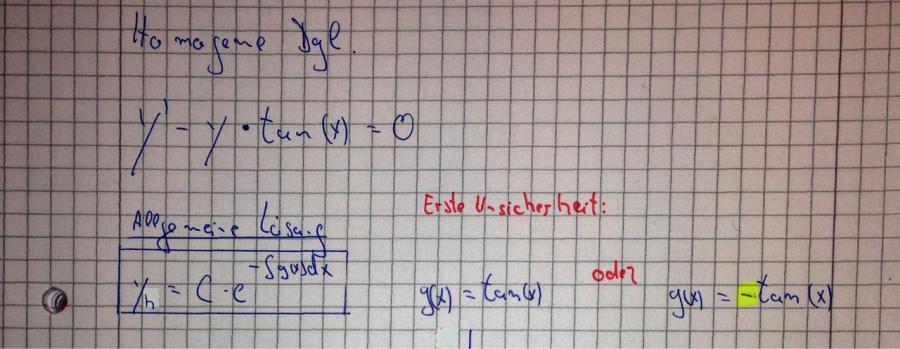 Homogene Dgl.
y' - y • tan(x) = 0
Erste Unsicherheit:
Allgemeine Lösung
y_h = C · e^{-∫g(x)dx}
g(x) = tan(x) oder g(x) = -tan(x)